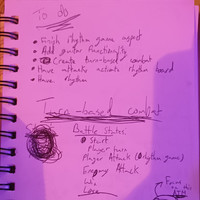 To do
• Finish rhythm game aspect
• Add guitar functionality
• Create turn-based combat
• Have attacks activate rhythm board
• Have rhythm
Turn-based combat
Battle States
Start
Player turn
Player Attack (rhythm game)
Enemy Attack
Win
Lose
Focus on this ATM